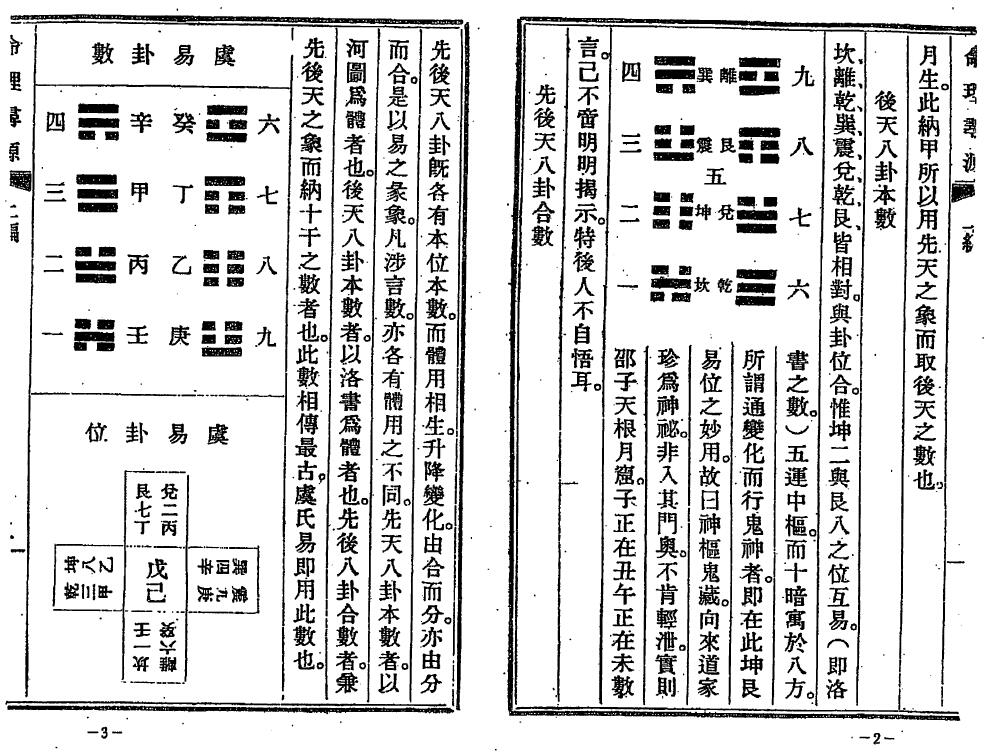 命理尋源 上編
月生。此納甲所以用先天之象而取後天之數也。
後天八卦本數
坎、離、乾、巽、震、兌、乾、艮、皆相對。與卦位合。惟坤二與艮八之位互易。(即洛
九 離 巽 四
八 艮 震 三
五
七 兌 坤 二
六 乾 坎 一
書之數)五運中樞。而十暗寓於八方。
所謂通變化而行鬼神者。即在此坤艮
易位之妙用。故曰神樞鬼藏。向來道家
珍爲神祕。非入其門奧。不肯輕泄。實則
邵子天根月窟。子正在丑午正在未數
言。已不啻明明揭示。特後人不自悟耳。
先後天八卦合數
—2—
先後天八卦旣各有本位本數。而體用相生。升降變化。由合而分。亦由分
而合。是以易之彖象。凡涉言數。亦各有體用之不同。先天八卦本數者。以
河圖爲體者也。後天八卦本數者。以洛書爲體者也。先後八卦合數者。兼
先後天之象而納十干之數者也。此數相傳最古。虞氏易即用此數也。
虞易卦數
六 癸 辛 四
七 丁 甲 三
八 乙 丙 二
九 庚 壬 一
虞易卦位
兌二丙
艮七丁
震九庚
巽四辛
戊己
乙八坤
甲三乾
離六癸
坎一壬
命理尋源 上編
—3—